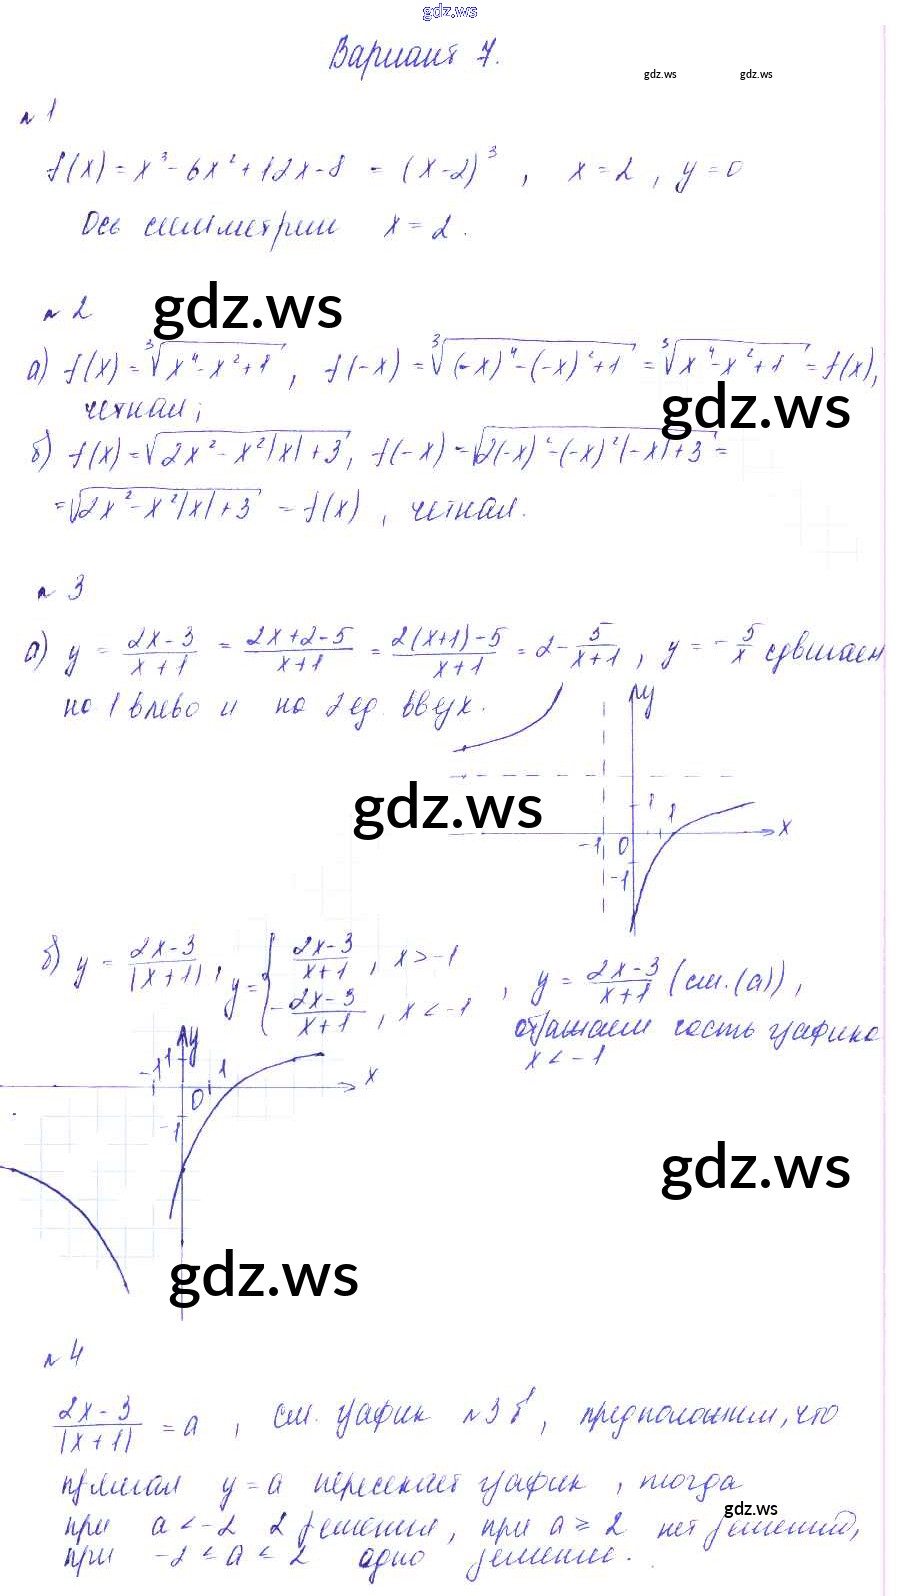 gdz.ws
Вариант 7.
gdz.ws gdz.ws
№ 1
f(x) = x³ - 6x² + 12x - 8 = (x-2)³, x = 2, y = 0
Ось симметрии x = 2.
№ 2
gdz.ws
а) f(x) = ∛(x⁴ - x² + 1), f(-x) = ∛((-x)⁴ - (-x)² + 1) = ∛(x⁴ - x² + 1) = f(x),
четная;
gdz.ws
б) f(x) = √(2x² - x²|x| + 3), f(-x) = √(2(-x)² - (-x)²|-x| + 3) =
= √(2x² - x²|x| + 3) = f(x), четная.
№ 3
а) y = (2x-3)/(x+1) = (2x+2-5)/(x+1) = (2(x+1)-5)/(x+1) = 2 - 5/(x+1), y = -5/x сдвигаем
на 1 влево и на 2 ед. вверх.
y
gdz.ws
1 1
-1 0 x
-1
б) y = (2x-3)/|x+1|, y = { (2x-3)/(x+1), x > -1
-(2x-3)/(x+1), x < -1, y = (2x-3)/(x+1) (см. (а)),
отражаем часть графика
x < -1
y
-1 1 1 x
0
-1
gdz.ws
gdz.ws
№ 4
(2x-3)/|x+1| = a, см. график №3 б, предположим, что
прямая y = a пересекает график, тогда
gdz.ws
при a < -2 2 решения, при a ≥ 2 нет решений,
при -2 ≤ a < 2 одно решение.